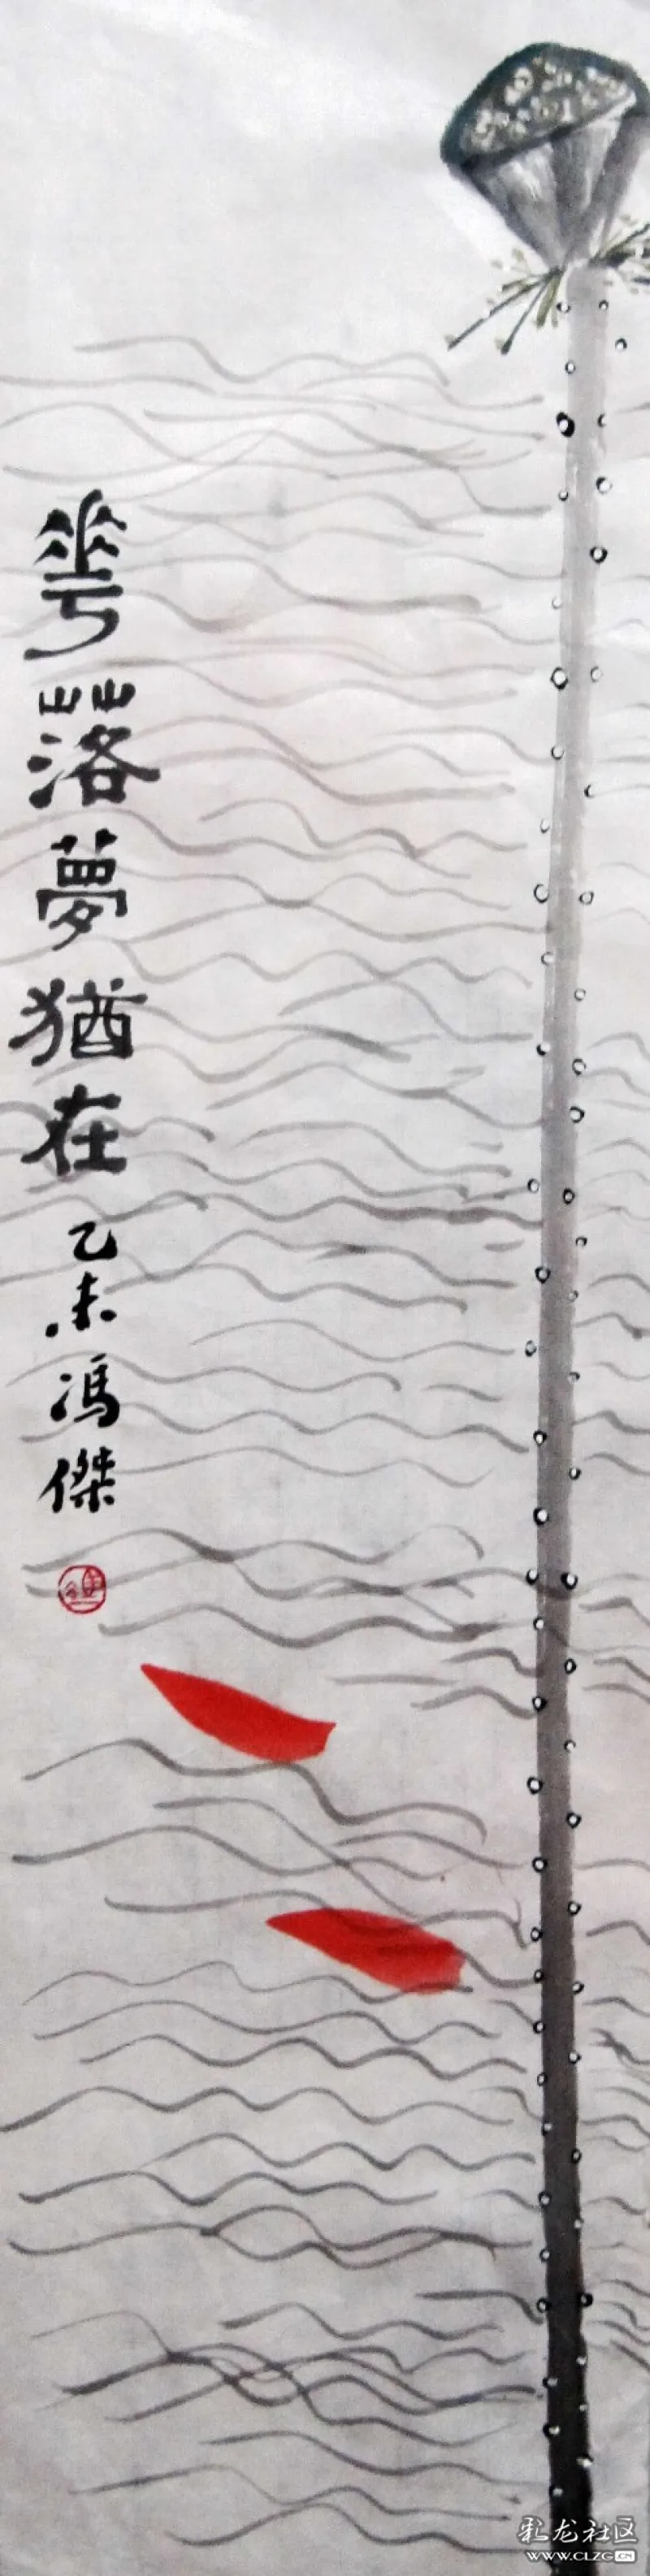 華落夢猶在
乙未馮傑
彩龙社区
WWW.CLZG.CN